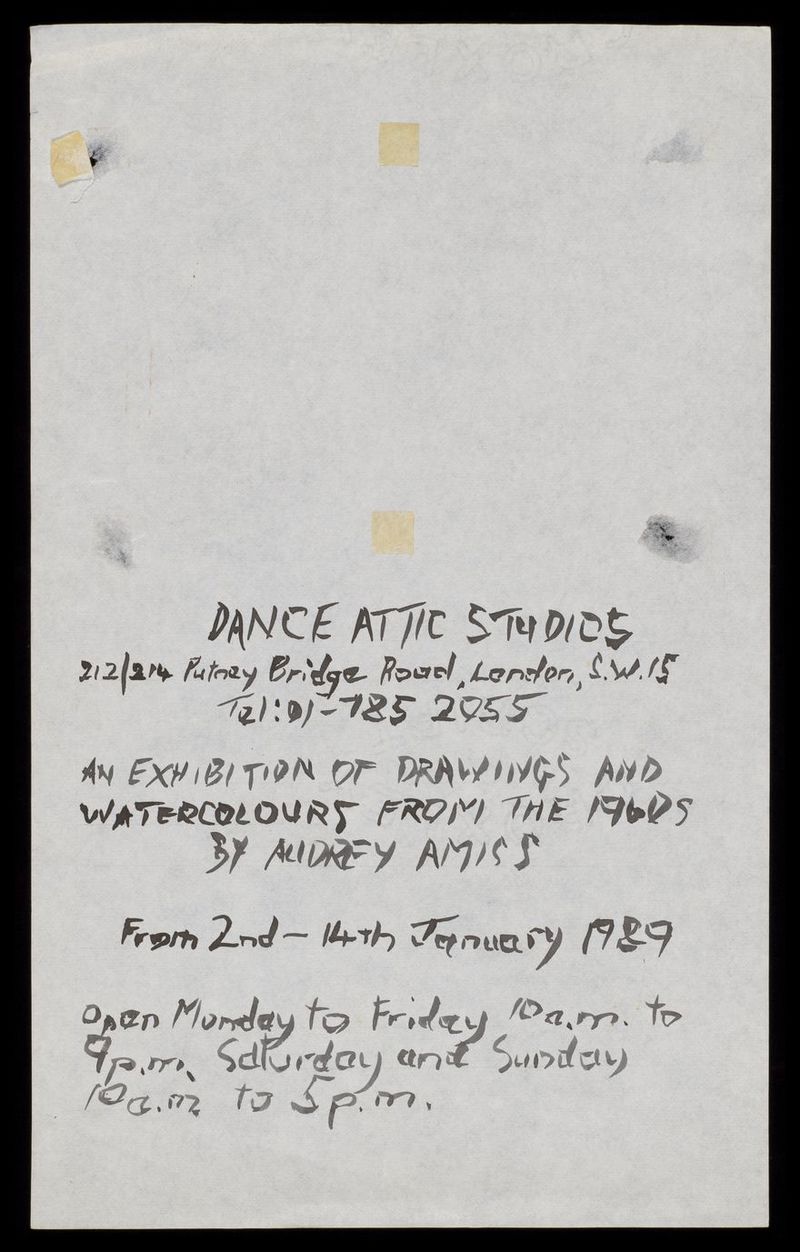 DANCE ATTIC STUDIOS
212/214 Putney Bridge Road, London, S.W.15
Tel: 01-785 2055
AN EXHIBITION OF DRAWINGS AND
WATERCOLOURS FROM THE 1960S
BY AUDREY AMISS
From 2nd - 14th January 1989
Open Monday to Friday 10a.m. to
9p.m. Saturday and Sunday
10a.m to 5p.m.